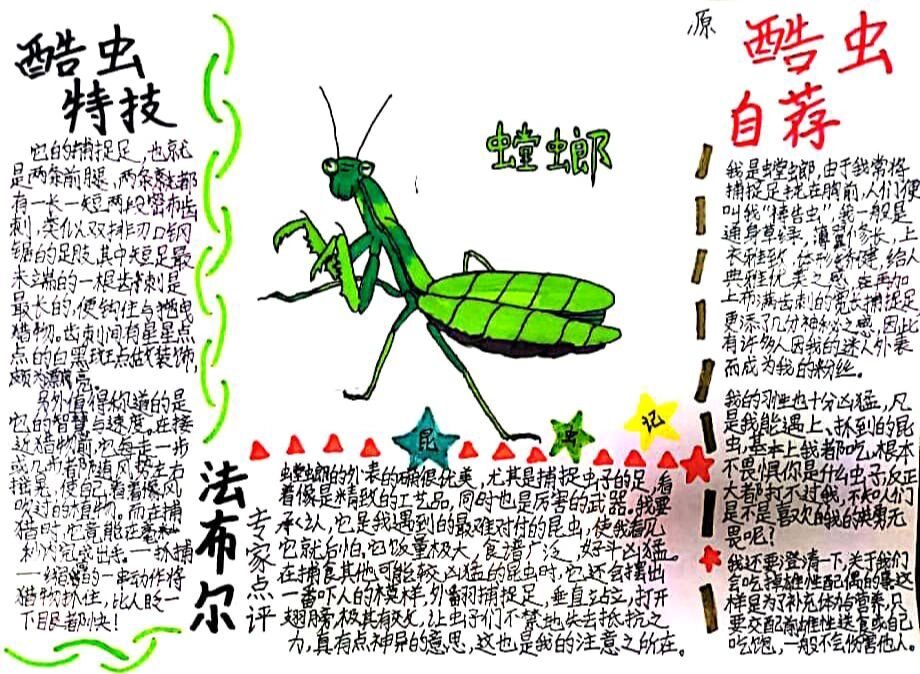 酷虫
特技
它的捕捉足，也就
是两条前腿，两条腿都
有一长一短两段密布齿
刺，类似双排刃口钢
锯的足肢，其中短足最
末端的一根齿刺是
最长的，便钩住与拖曳
猎物。齿刺间有星星点
点的白黑斑点做装饰，
颇为漂亮。
另外值得称道的是
它的智慧与速度。在接
近猎物前，它每走一步
或几步都随风势左右
摇晃，使自己看着像风
吹过的植物。而在捕
猎时，它竟能在毫秒
内完成出手。一抓捕
一线的一串动作将
猎物抓住，比人眨一
下眼都快！
螳螂
昆
虫
记
法布尔
专家点评
螳螂的外表的确很优美，尤其是捕捉虫子的足，看
着像是精致的工艺品，同时也是厉害的武器。我要
承认，它是我遇到的最难对付的昆虫，使我看见
它就后怕，它饭量极大，食谱广泛，好斗凶猛。
在捕食其他可能较凶猛的昆虫时，它还会摆出
一番吓人的模样，外翻捕捉足，垂直站立，打开
翅膀，极其有效，让虫子们不禁地失去抵抗之
力，真有点神异的意思，这也是我的注意之所在。
源
酷虫
自荐
我是螳螂，由于我常将
捕捉足拢在胸前，人们便
叫我“祷告虫”。我一般是
通身草绿，薄翼修长，上
衣雅致，体形矫健，给人
典雅优美之感，在再加
上布满齿刺的宽大捕捉足
更添了几分神秘之感，因此
有许多人因我的迷人外表
而成为我的粉丝。
我的习性也十分凶猛，凡
是我能遇上、抓到的昆
虫，基本上我都吃，根本
不畏惧你是什么虫子，反正
大都打不过我，不知人们
是不是喜欢的我的英勇无
畏呢！
我还要澄清一下，关于我们
会吃掉雄性配偶的事，这
样是为了补充体力与营养，只
要交配前雄性送食或自己
吃饱，一般不会伤害他人。